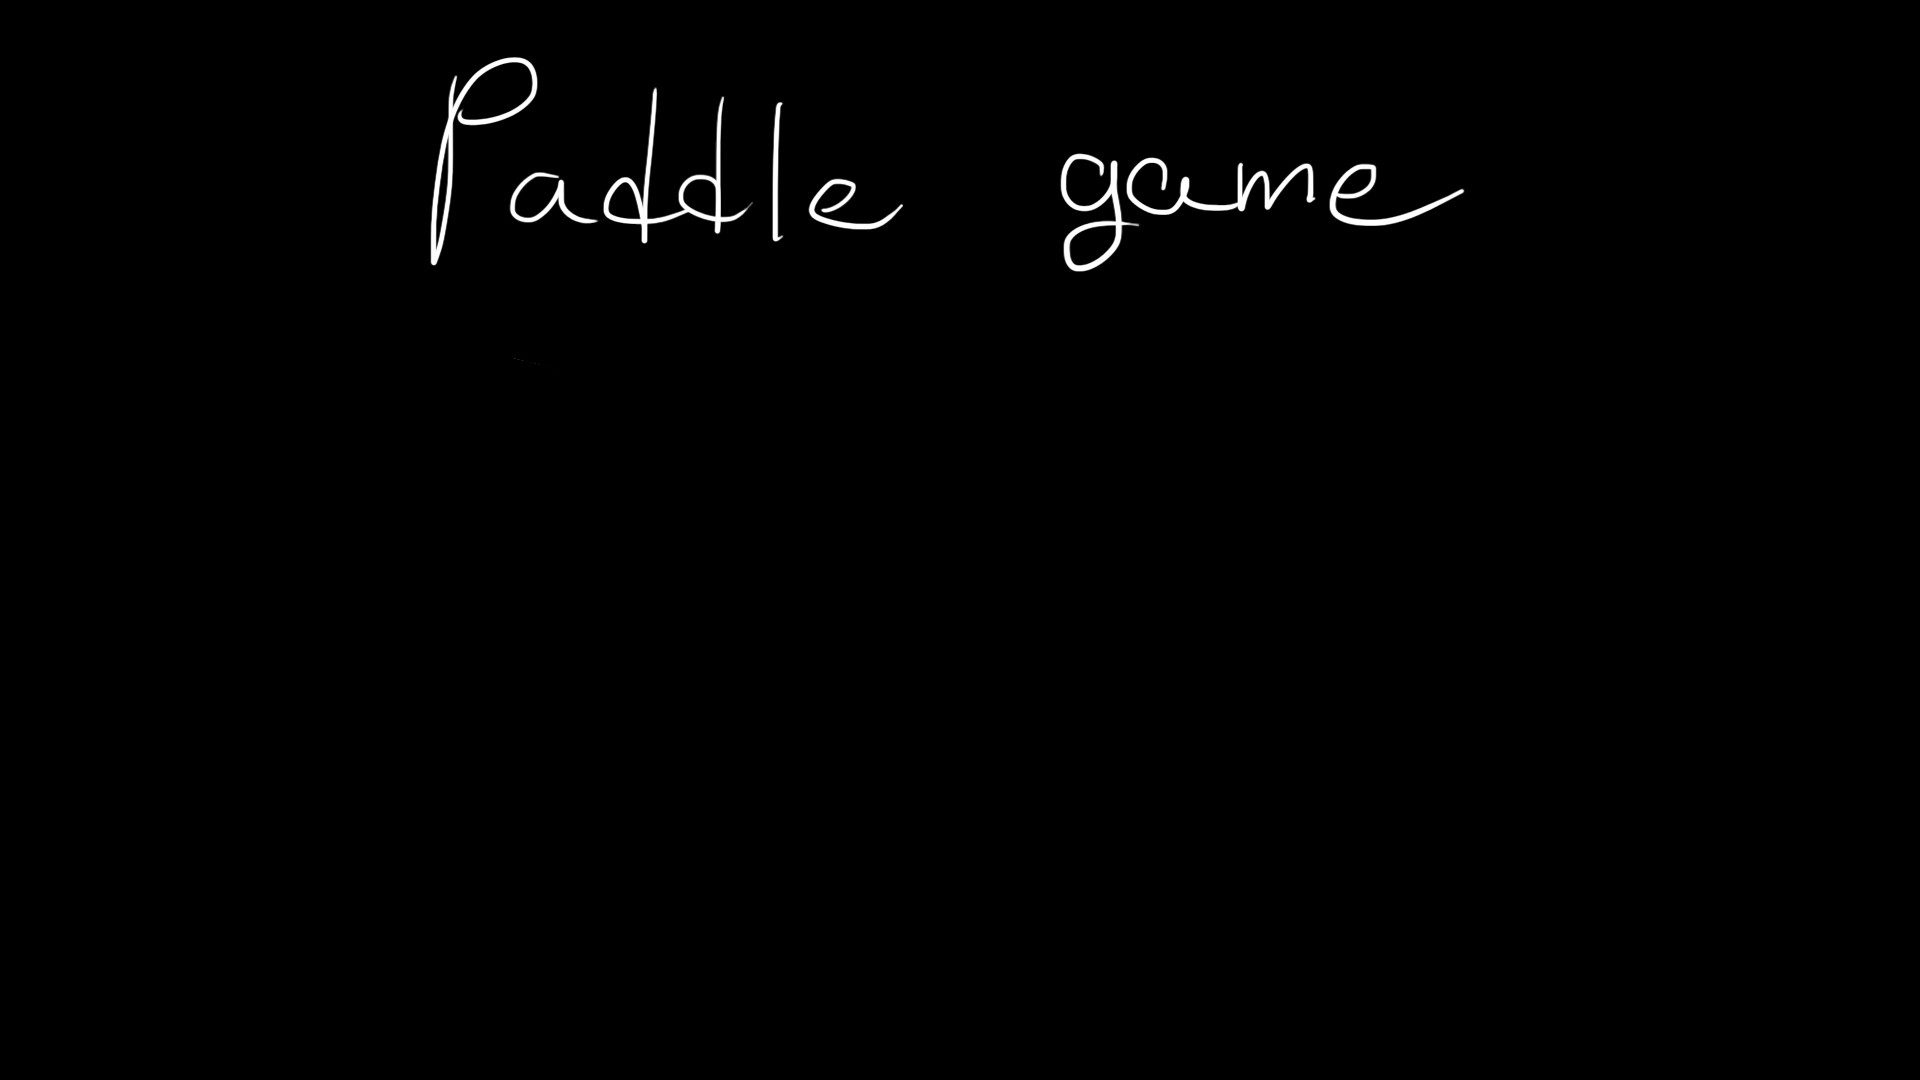 Paddle game